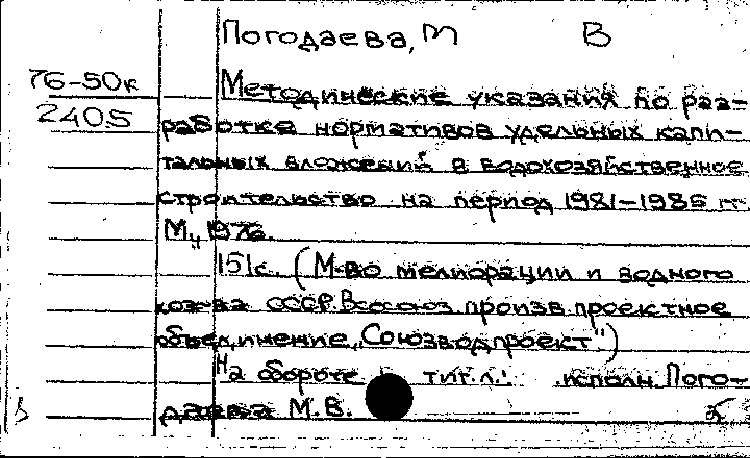 Погодаева, М В
76-50к
2405
Методические указания по раз-
работке нормативов удельных капи-
тальных вложений в водохозяйственное
строительство на период 1981-1985 гг.
М., 1976.
151с. (М-во мелиорации и водного
хоз-ва СССР. Всесоюз. произв. проектное
объединение „Союзводпроект")
На обороте тит.л.: исполн. Пого-
даева М.В.